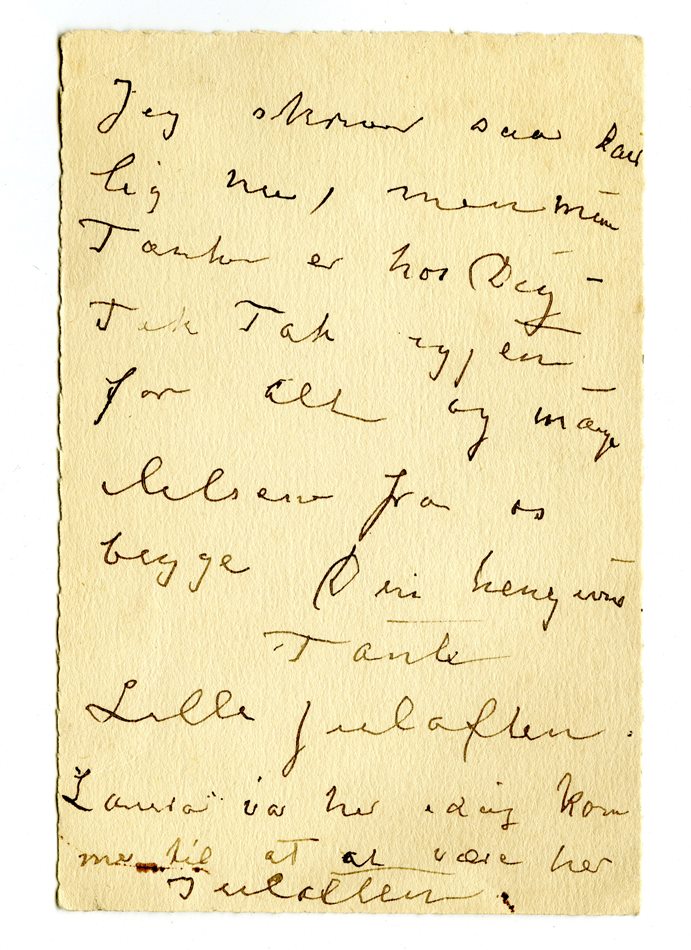 Jeg skriver saa daar
lig nu, men mine
Tanker er hos Dig -
Tak Tak igjen
for alt og mange
hilsener fra os
begge Din hengivne
Tante
Lille Juleaften.
Laura var her idag kom
mer til at at være her
Juleaften.